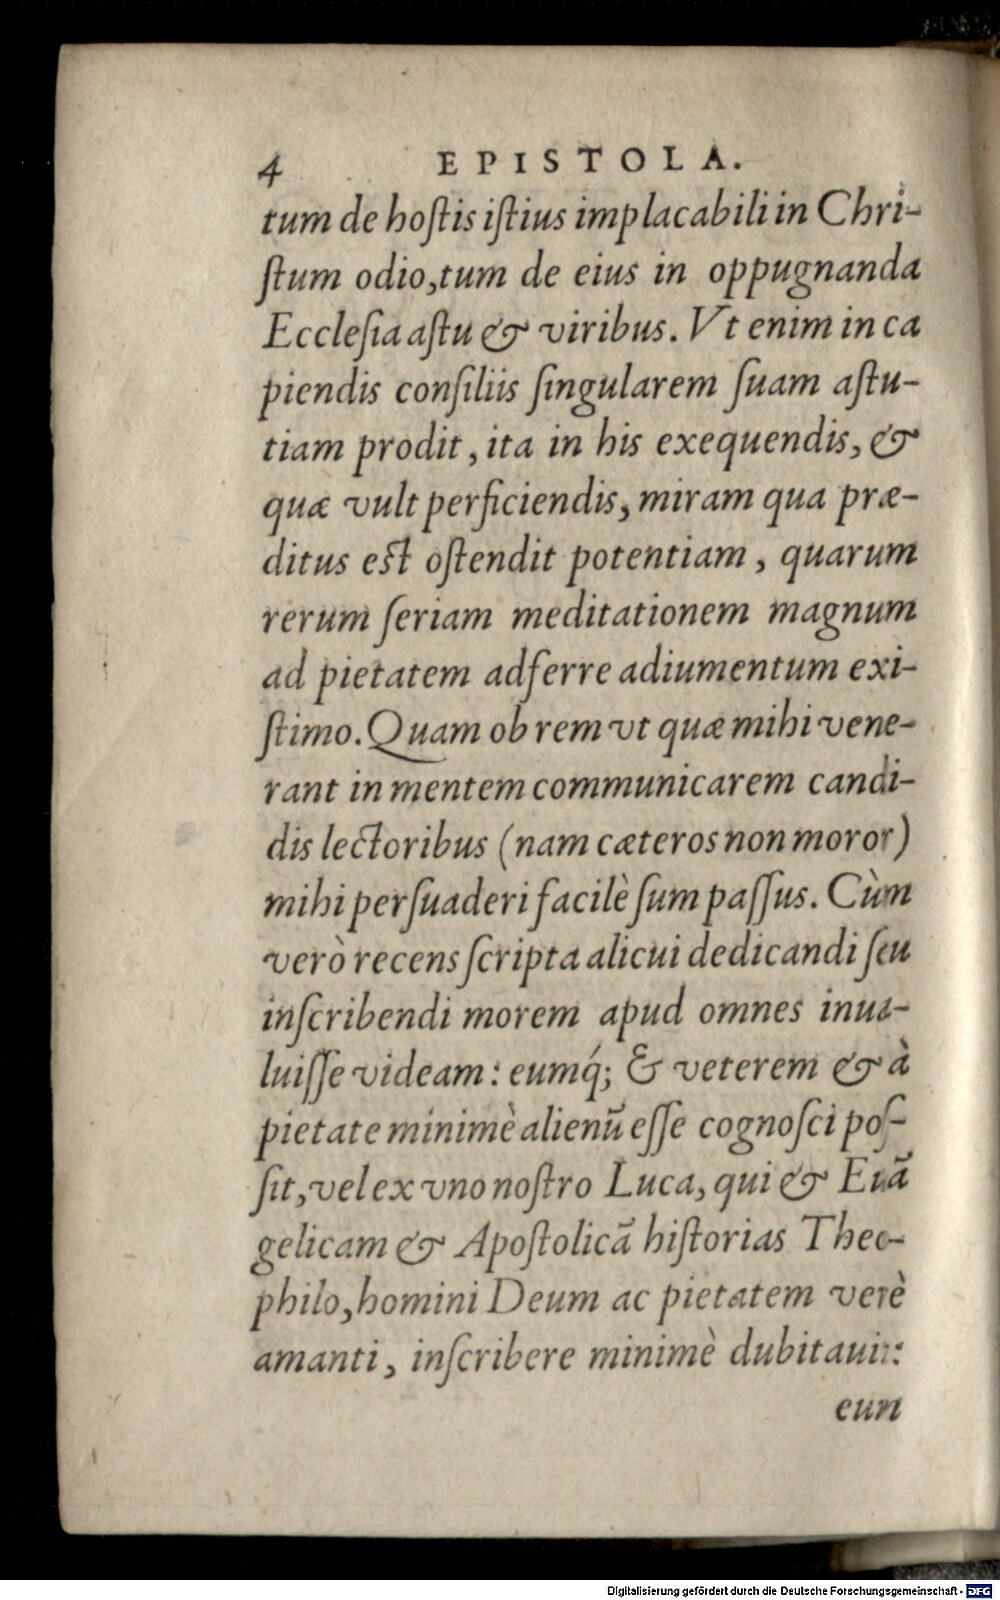 4 EPISTOLA.
tum de hoſtis iſtius implacabili in Chri-
ſtum odio, tum de eius in oppugnanda
Eccleſia aſtu & viribus. Vt enim in ca
piendis conſiliis ſingularem ſuam aſtu-
tiam prodit, ita in his exequendis, &
quæ vult perficiendis, miram qua præ-
ditus eſt oſtendit potentiam, quarum
rerum ſeriam meditationem magnum
ad pietatem adferre adiumentum exi-
ſtimo. Quam ob rem vt quæ mihi vene-
rant in mentem communicarem candi-
dis lectoribus (nam cæteros non moror)
mihi perſuaderi facilè ſum paſſus. Cùm
verò recens ſcripta alicui dedicandi ſeu
inſcribendi morem apud omnes inua-
luiſſe videam: eumq́; & veterem & à
pietate minimè alienũ eſſe cognoſci poſ-
ſit, vel ex vno noſtro Luca, qui & Euã
gelicam & Apoſtolicã hiſtorias Theo-
philo, homini Deum ac pietatem verè
amanti, inſcribere minimè dubitauit:
eun
Digitalisierung gefördert durch die Deutsche Forschungsgemeinschaft - DFG